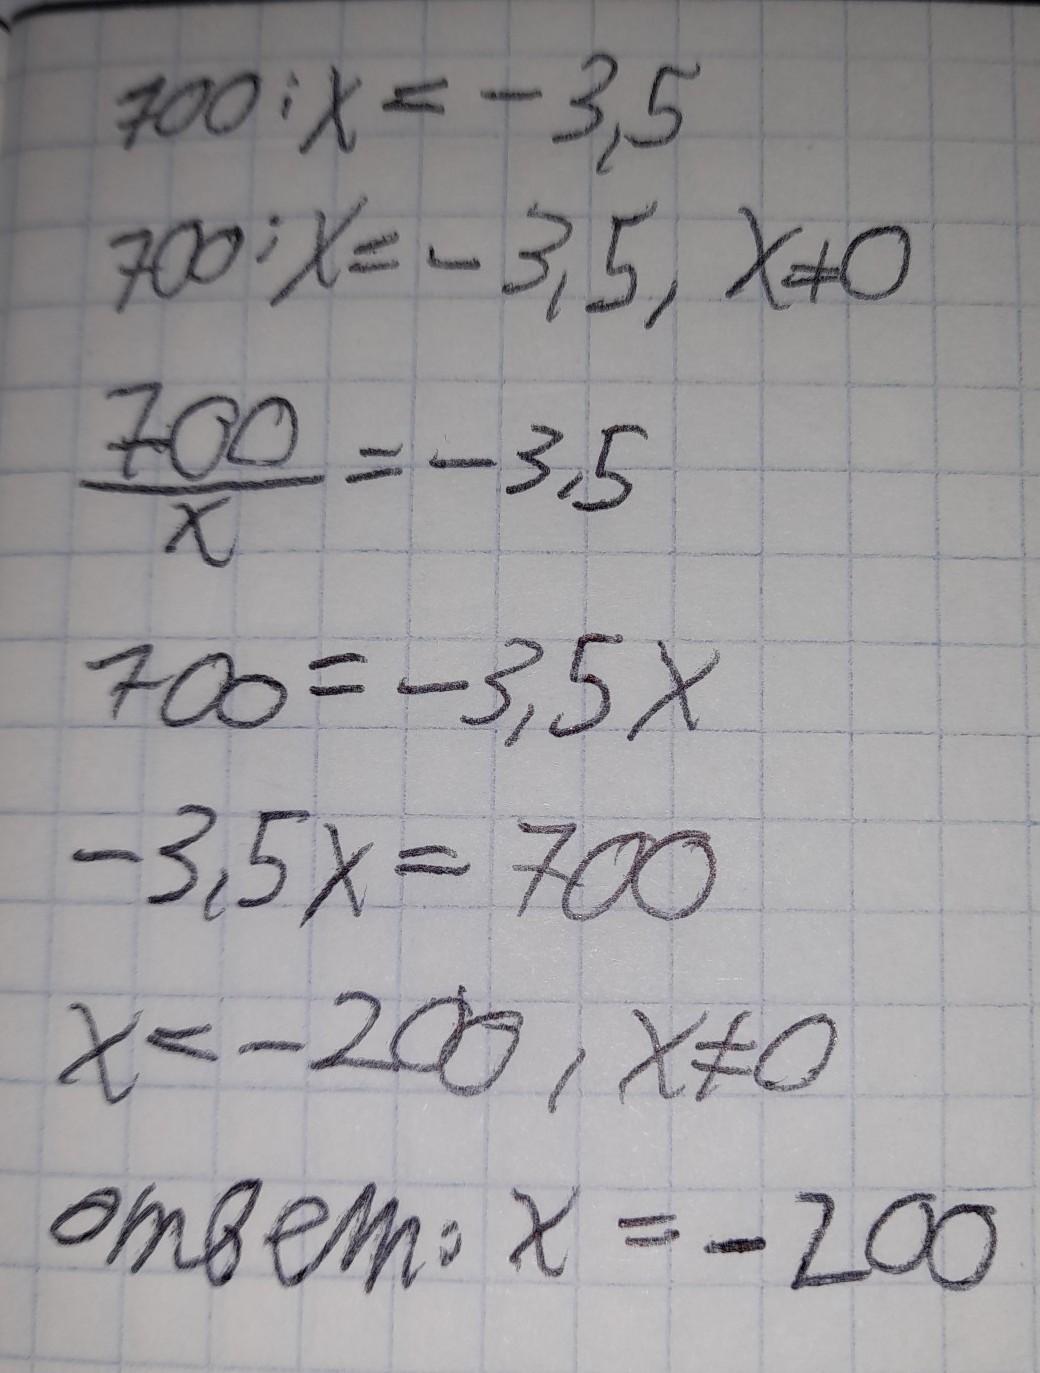 700:x=-3,5
700:x=-3,5, x≠0
700/x=-3,5
700=-3,5x
-3,5x=700
x=-200, x≠0
ответ: x=-200